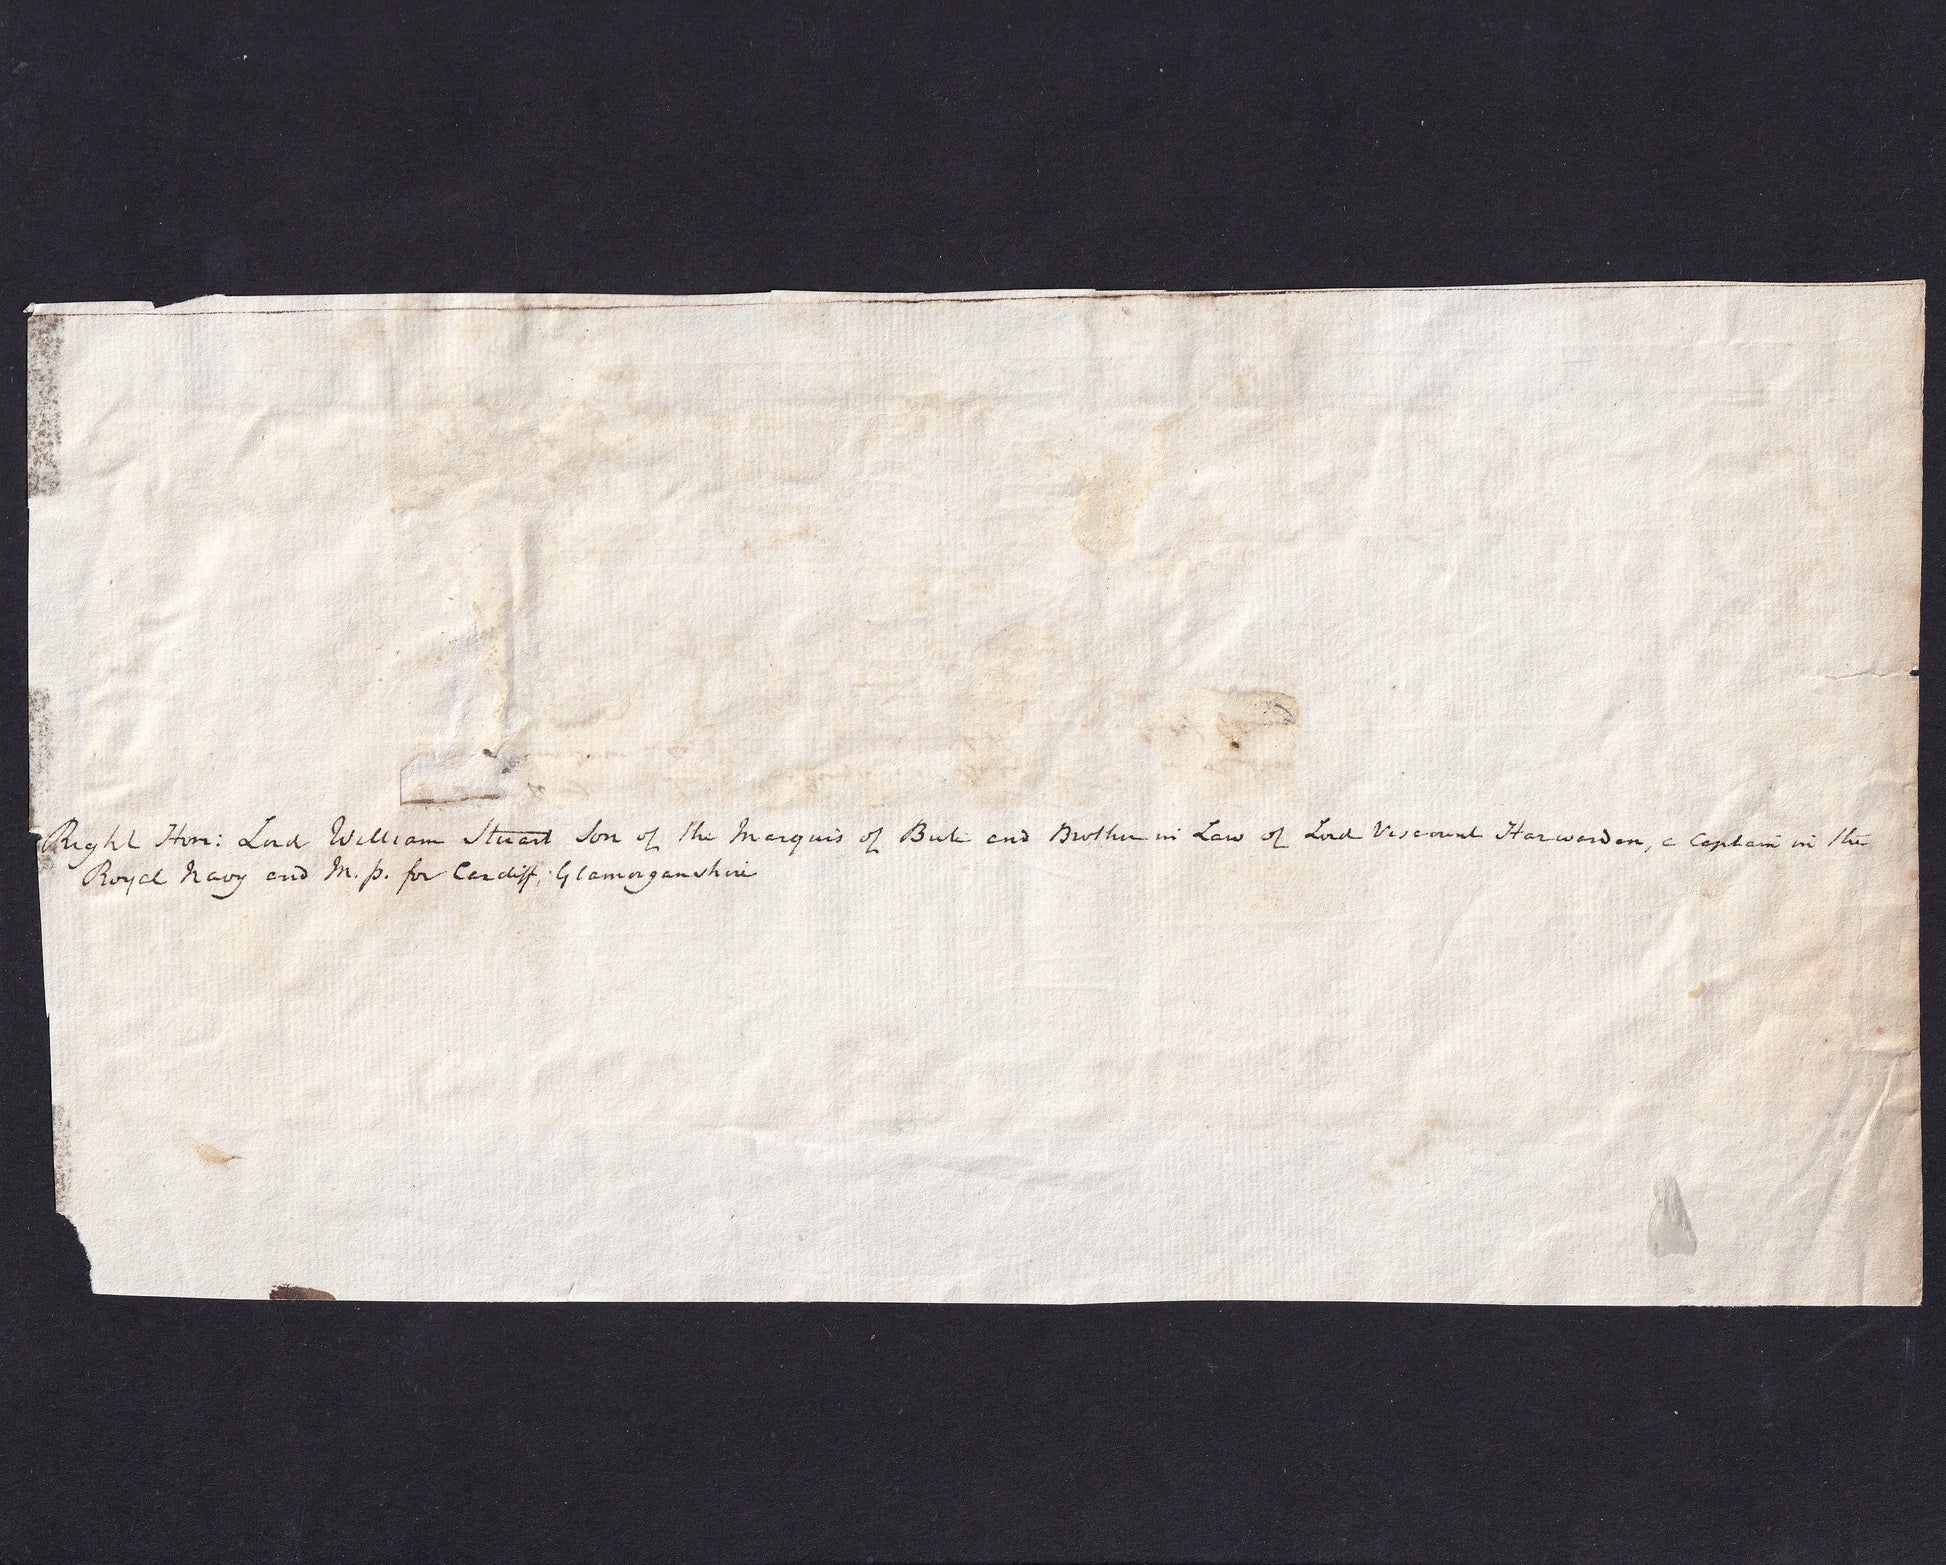 Right Hon: Lord William Stuart Son of the Marquis of Bute and Brother in Law of Lord Viscount Harwarden, a Captain in the
Royal Navy and M. p. for Cardiff, Glamorganshire